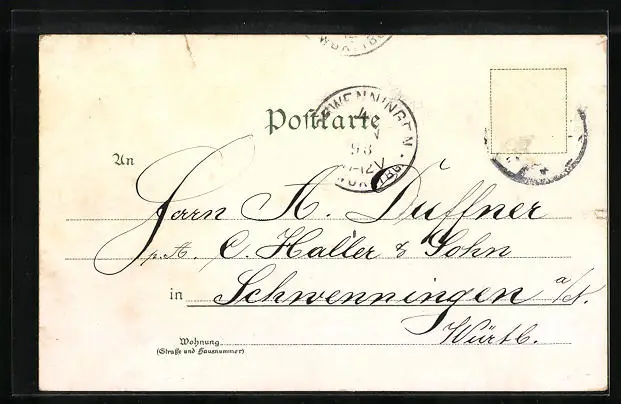 WÜRTTBG
SCHWENNINGEN
4
V
98
-12V
WÜRTTBG
Postkarte
An
Herrn A. Duffner
p. A. C. Haller & Sohn
in Schwenningen a/N.
Württb.
Wohnung
(Straße und Hausnummer)